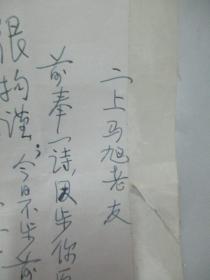 二上马旭老友
前奉一诗,因步你原
很拘谨,今日不步前